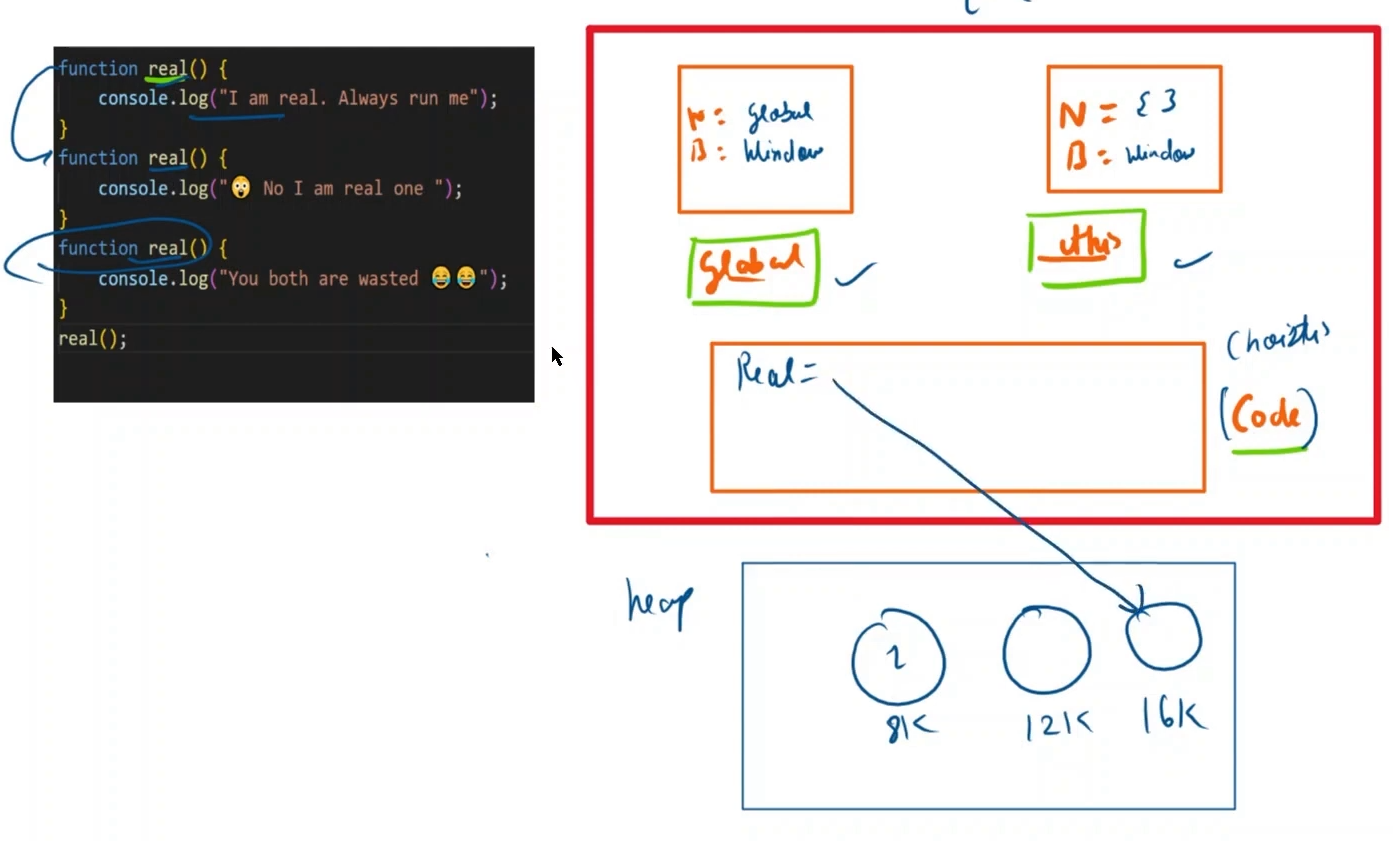 function real() {
console.log("I am real. Always run me");
}
function real() {
console.log("😲 No I am real one ");
}
function real() {
console.log("You both are wasted 😂😂");
}
real();
N: Global
B: Window
N = { }
B: Window
Global
this
Real =
(Code)
heap
1
8K
12K
16K